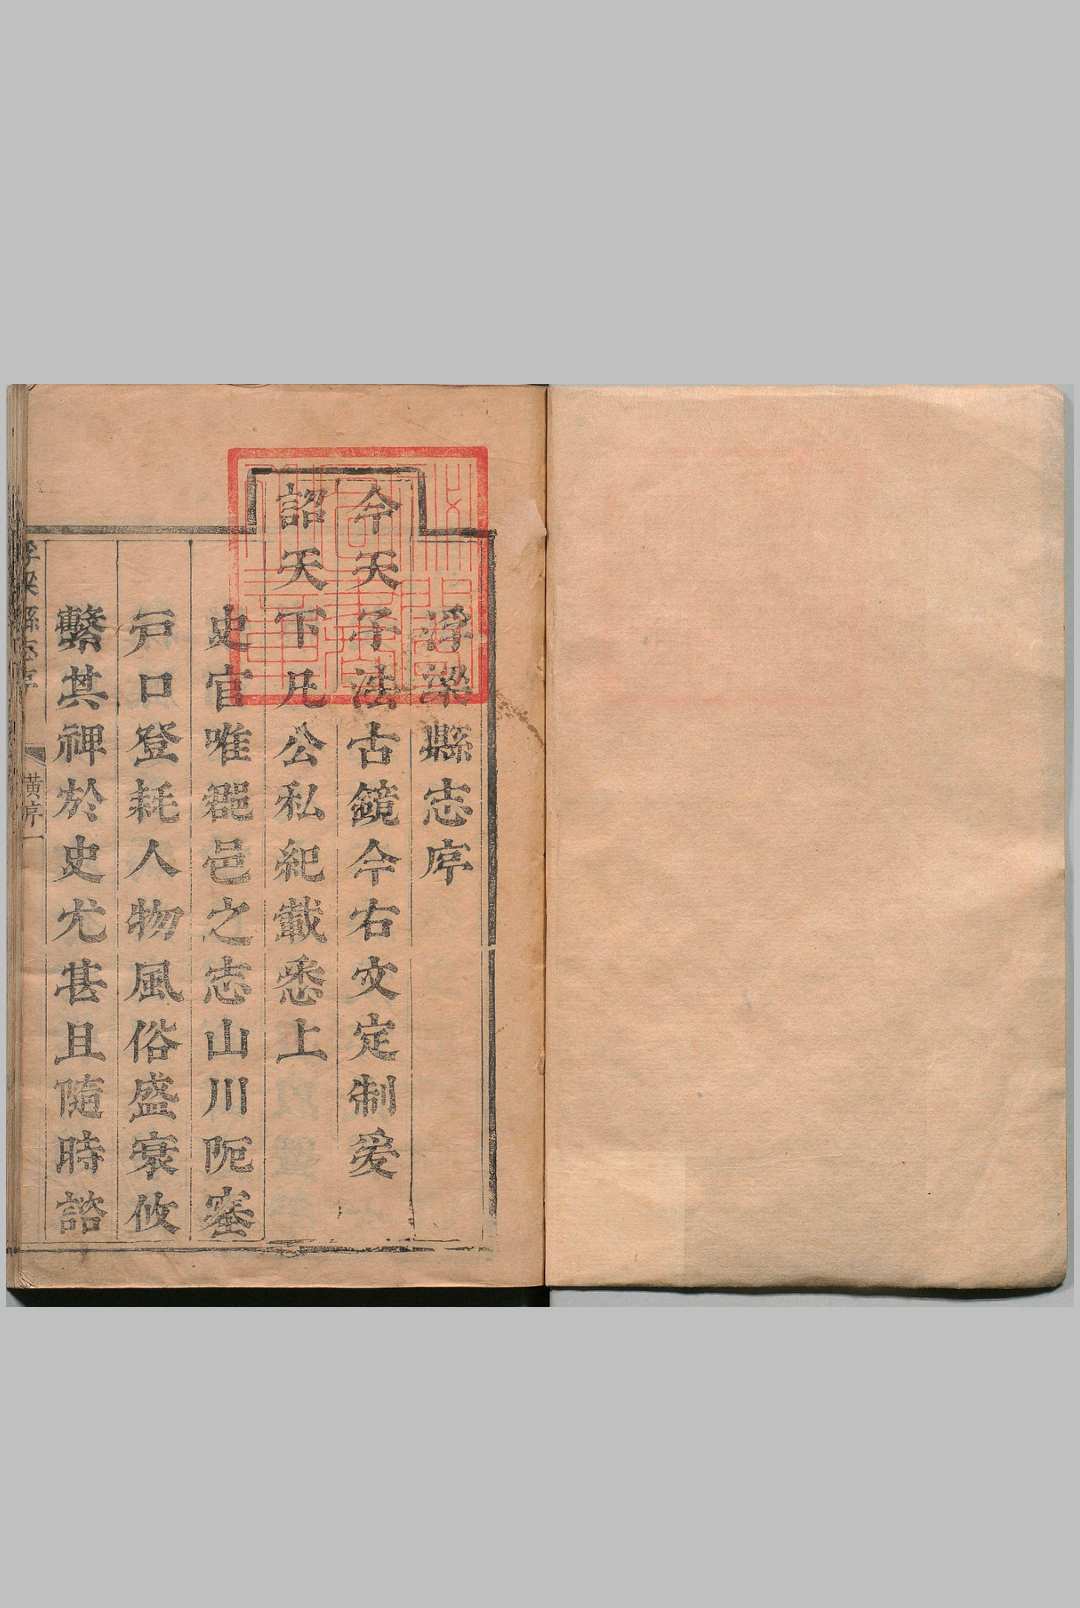 浮梁縣志序
今天子法古鏡今右文定制爰
詔天下凡公私紀載悉上
史官唯郡邑之志山川阨塞
戸口登耗人物風俗盛衰攸
繫其裨於史尤甚且隨時諮
浮梁縣志序
黄序